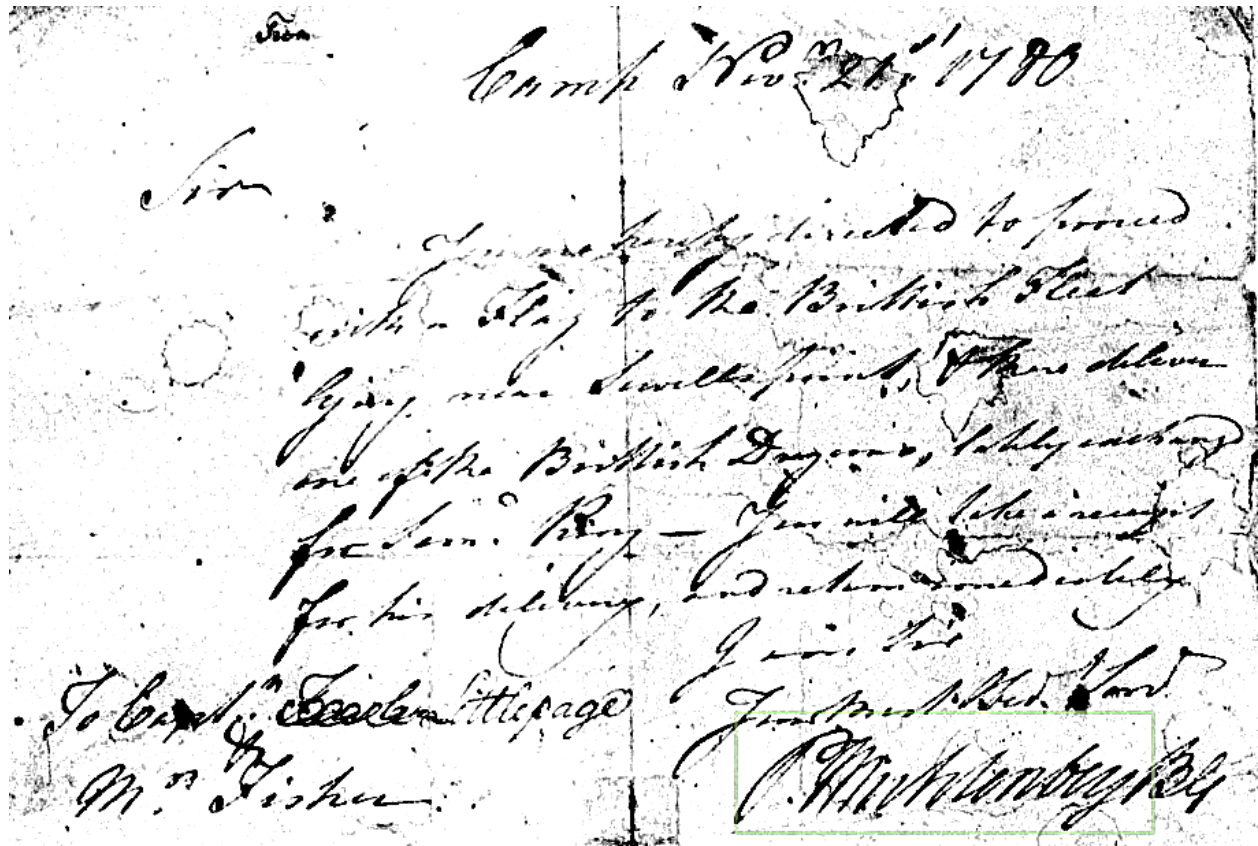 From
Camp Nov.m 21.st 1780
Sir
You are hereby directed to proceed
with a Flag to the Brittish Fleet
lying near Sewells point, & there deliver
one of the Brittish Dragoons, lately exchangd
for Serj.t King — You will take a receipt
for his delivery, and return immediately
I am Sir
Your Most Obed. Serv.t
To Capt.n Littlepage
&
M.r Fisher
P. Muhlenberg BG